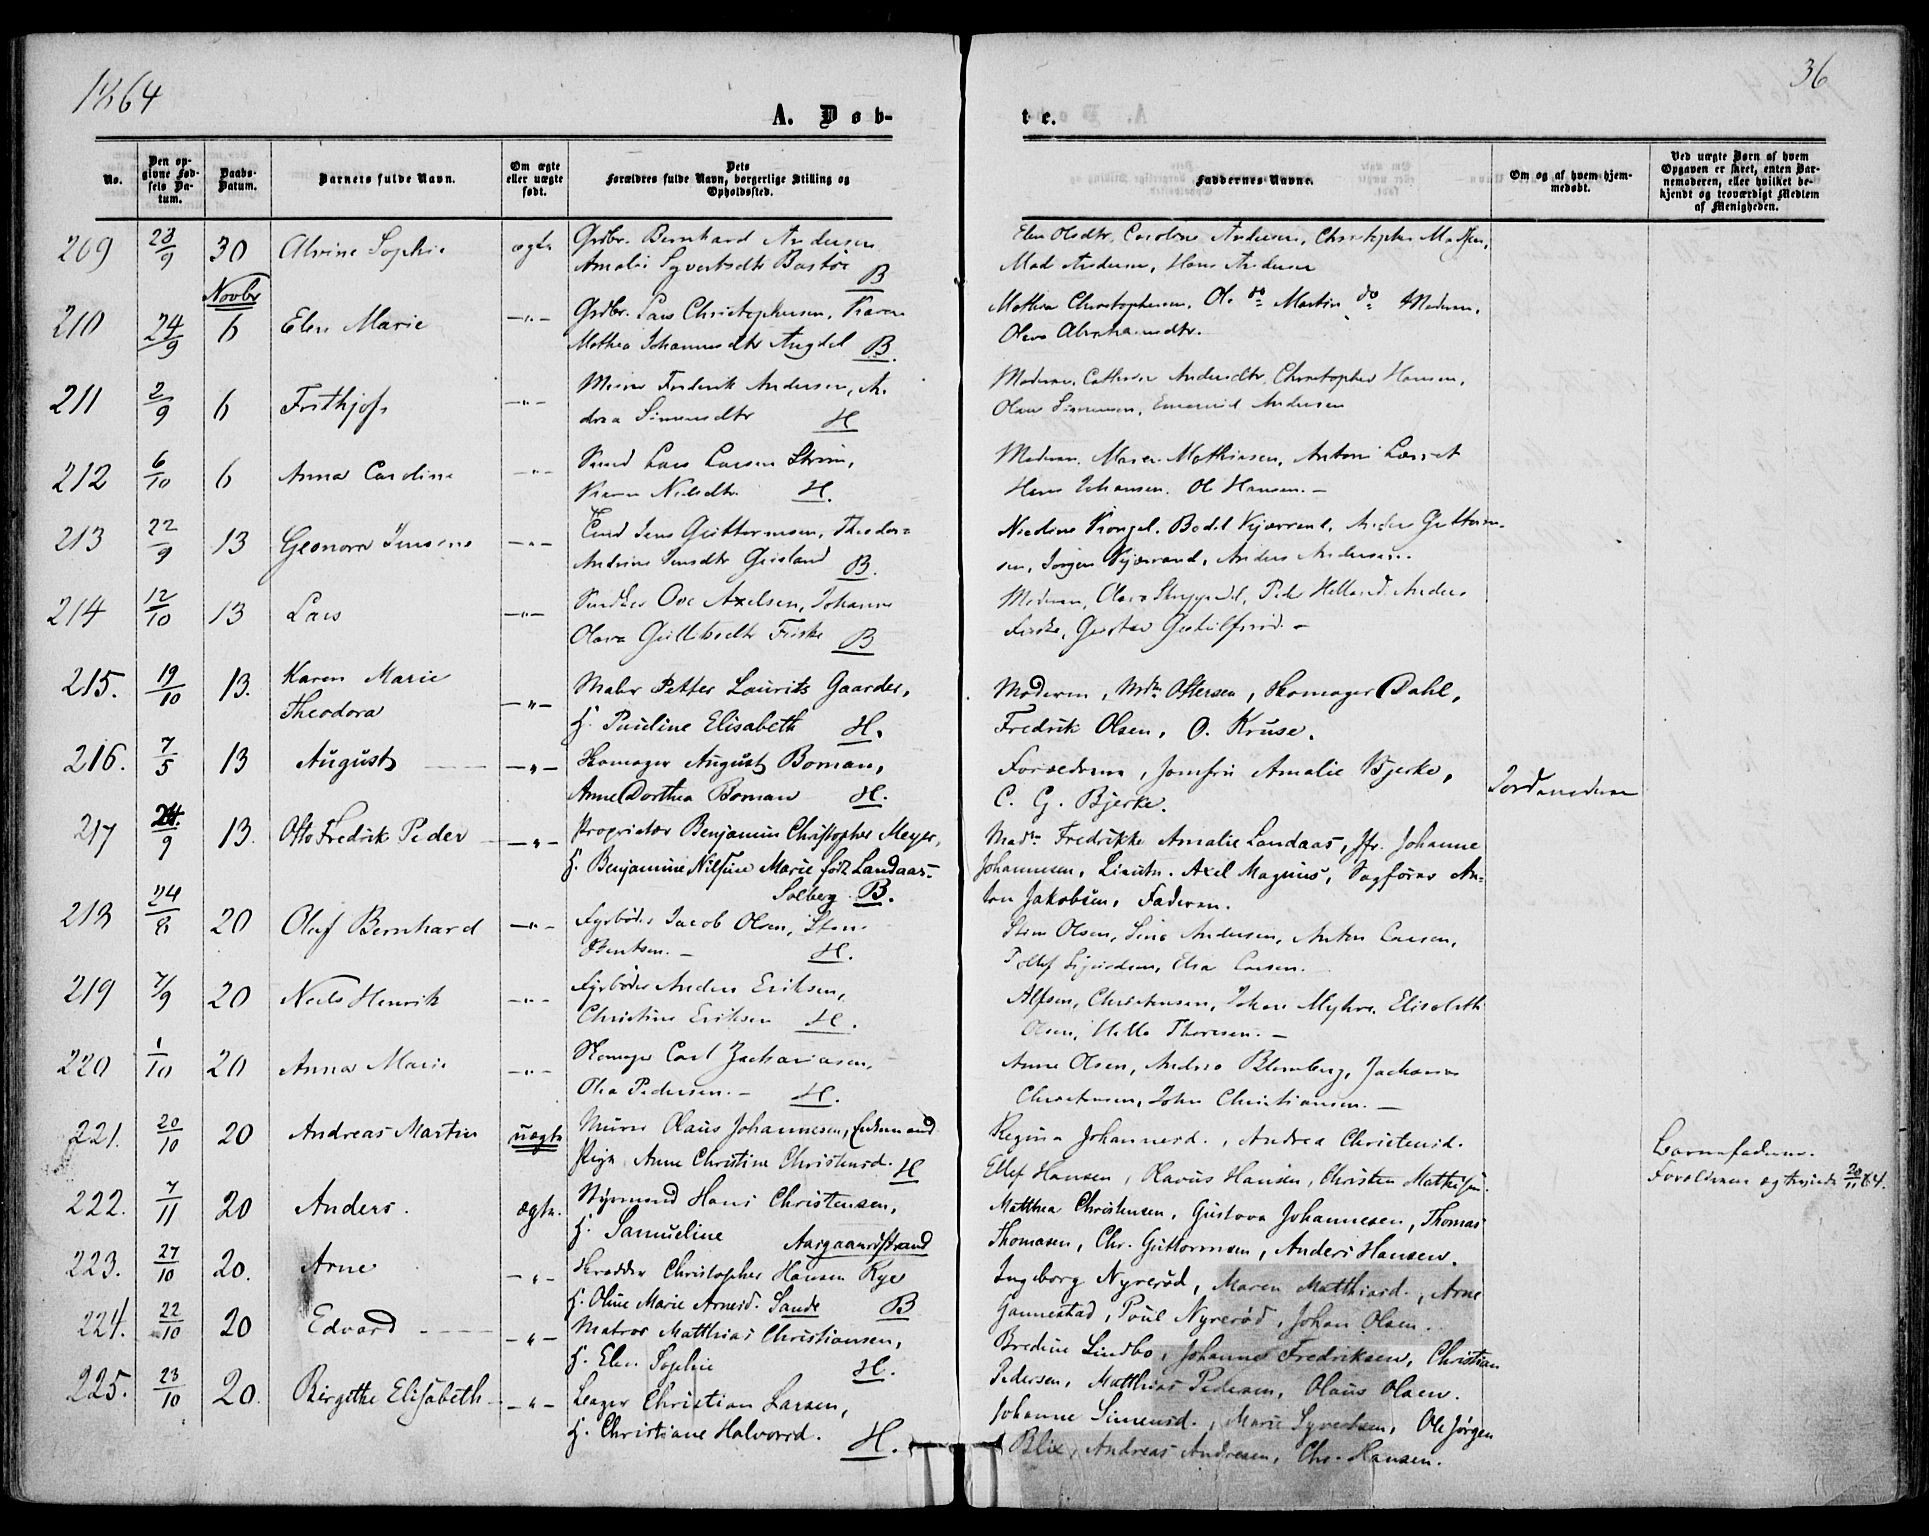 1864
36
A. Døb-
te.
No.
Den op-
givne Fød-
sels Da-
tum.
Daabs-
Datum.
Barnets fulde Navn.
Om ægte
eller uægte
født.
Dets
Forældres fulde Navn, borgerlige Stilling og
Opholdssted.
Faddernes Navne.
Om og af hvem hjem-
medøbt.
Ved uægte Børn af hvem
Opgaven er skeet, enten Bar-
nemoderen, eller hvilket be-
kjendt og troværdigt Medlem
af Menigheden.
209 23/9 30 Alvine Sophie ægte Grdbr. Bernhard Andersen
Amalie Syvertsdtr Bastøe B
Elen Olsdtr, Caroline Andersen, Christopher Madsen,
Mad Andersen, Hans Andersen
Novbr
210 24/9 6 Elen Marie —„— Grdbr. Lars Christophersen, Karen
Mathea Johannesdtr Angdel B.
Mathea Christophersen, Ole do Martin do Moderen,
Olava Abrahamsdtr.
211 2/9 6 Frithjof —„— Murer Frederik Andersen, An-
drea Simensdtr H
Moderen, Cathrine Andersdtr, Christopher Hansen,
Olaus Simensen, Andersen
212 6/10 6 Anna Caroline —„— Lars Larsen Strøm,
Karen Nielsdtr. H.
Moderen, Maren Mathisen, Anton
Hans Johansen. Ole Hansen. —
213 22/9 13 Jensine —„— Jens Guttormsen, Theodora
Andrine Jensdtr B.
Nicoline Bodil Anders Guttorm-
sen, Jørgen Anders Andersen.
214 12/10 13 Lars —„— Ove Axelsen, Johanne
Olava Friske B
Moderen, Olava Peder Helland, Anders
Friske, Gustav —
215. 19/10 13. Karen Marie
Theodora —„— Maler Petter Laurits Gaarder,
H. Pauline Elisabeth H.
Moderen, Mdm Ottersen, Skomager Dahl,
Fredrik Olsen, O. Kruse.
216. 7/5 13 August —„— Skomager August Boman,
Anne Dorthea Boman H.
Forældrene, Jomfru Amalie Bjerke,
C. G. Bjerke.
Jordemoderen
217 24/9 13. Otto Fredrik Peder —„— Proprietær Benjamin Christopher Meyer,
H. Benjamine Nilsine Marie født Landaas.
Solberg. B.
Madm Fredrikke Amalie Landaas, Jfr. Johanne
Johannesen, Lieutn. Axel Magnus, Sagfører An-
ton Jakobsen, Faderen.
218 24/8 20 Oluf Bernhard —„— Fyrbøder Jacob Olsen,
Berntsen. — H.
Olsen, Andersen, Anton Larsen,
Tollef Sigurdsen, Elsa Larsen.
219 7/9 20 Neils Henrik —„— Fyrbøder Anders Eriksen,
Christine Eriksen H.
Alfsen, Christensen, Johan Myhre, Elisabeth
Olsen, Helle Thoresen. —
220 1/10 20 Anna Marie —„— Skomager Carl Zachariasen,
Olea Pedersen. — H.
Anne Olsen, Andrea Blomberg, Zacharias
Christensen, John Christiansen. —
221. 20/10 20 Andreas Martin uægte Murer Olaus Johannesen, Enkemand
Pige Anne Christine Christensd. H
Regina Johannesd., Andrea Christensd.
Ellef Hansen, Olavus Hansen, Christen Mathisen.
Barnefaderen.
Forældrene 20/11 64.
222. 7/11 20 Anders. ægte. Styrmand Hans Christensen,
H. Samueline Aasgaardstrand
Matthea Christensen, Gustava Johannesen, Thomas
Thomasen, Chr. Guttormsen, Anders Hansen.
223. 27/10 20. Arne —„— Skredder Christopher Hansen Rye
H. Oline Marie Arnesd. Sande B
Ingeborg Nyrerød, Maren Matthiasd., Arne
Gannestad, Poul Nyrerød, Johan Olsen.
224. 22/10 20 Edvard —„— Matros Matthias Christiansen,
H. Elen Sophie H.
Bredine Lindbo, Johanne Fredriksen, Christian
Pedersen, Matthias Pedersen, Olaus Olsen.
225. 23/10 20. Birgitte Elisabeth —„— Christian Larsen,
H. Christiane Halvorsd. H.
Johanne Simensd., Marie Syvertsen, Ole Jørgen
Blix, Andreas Andresen, Chr. Hansen.